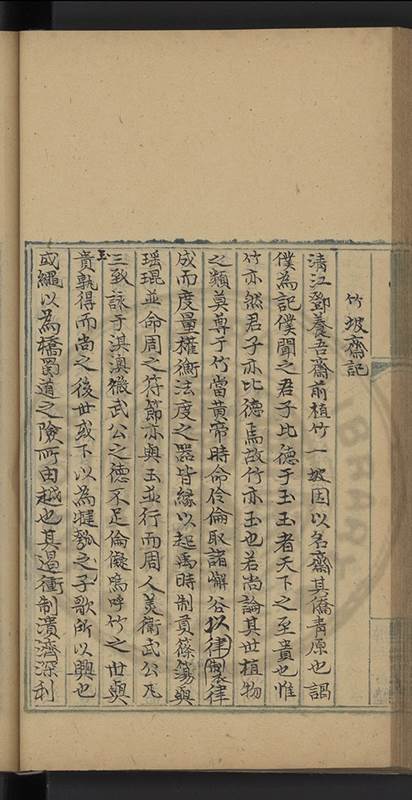 竹坡齋記
清江鄧養吾齋前植竹一坡因以名齋其僑青原也謁
僕為記僕聞之君子比德于玉玉者天下之至貴也惟
竹亦然君子亦比德焉故竹亦玉也若尚論其世植物
之類莫尊于竹當黄帝時命伶倫取諸懈谷以律製律
成而度量權衡法度之器皆緣以起禹時制貢篠簜與
瑶琨並命周之符節亦與玉並行而周人美衛武公凡
三致詠于淇澳微武公之德不足倫儗嗚呼竹之世與
玉
貴孰得而尚之後世或下以為楗瓠之子歌所以興也
成繩以為橋蜀道之險所由越也其遏衝制潰濟深利